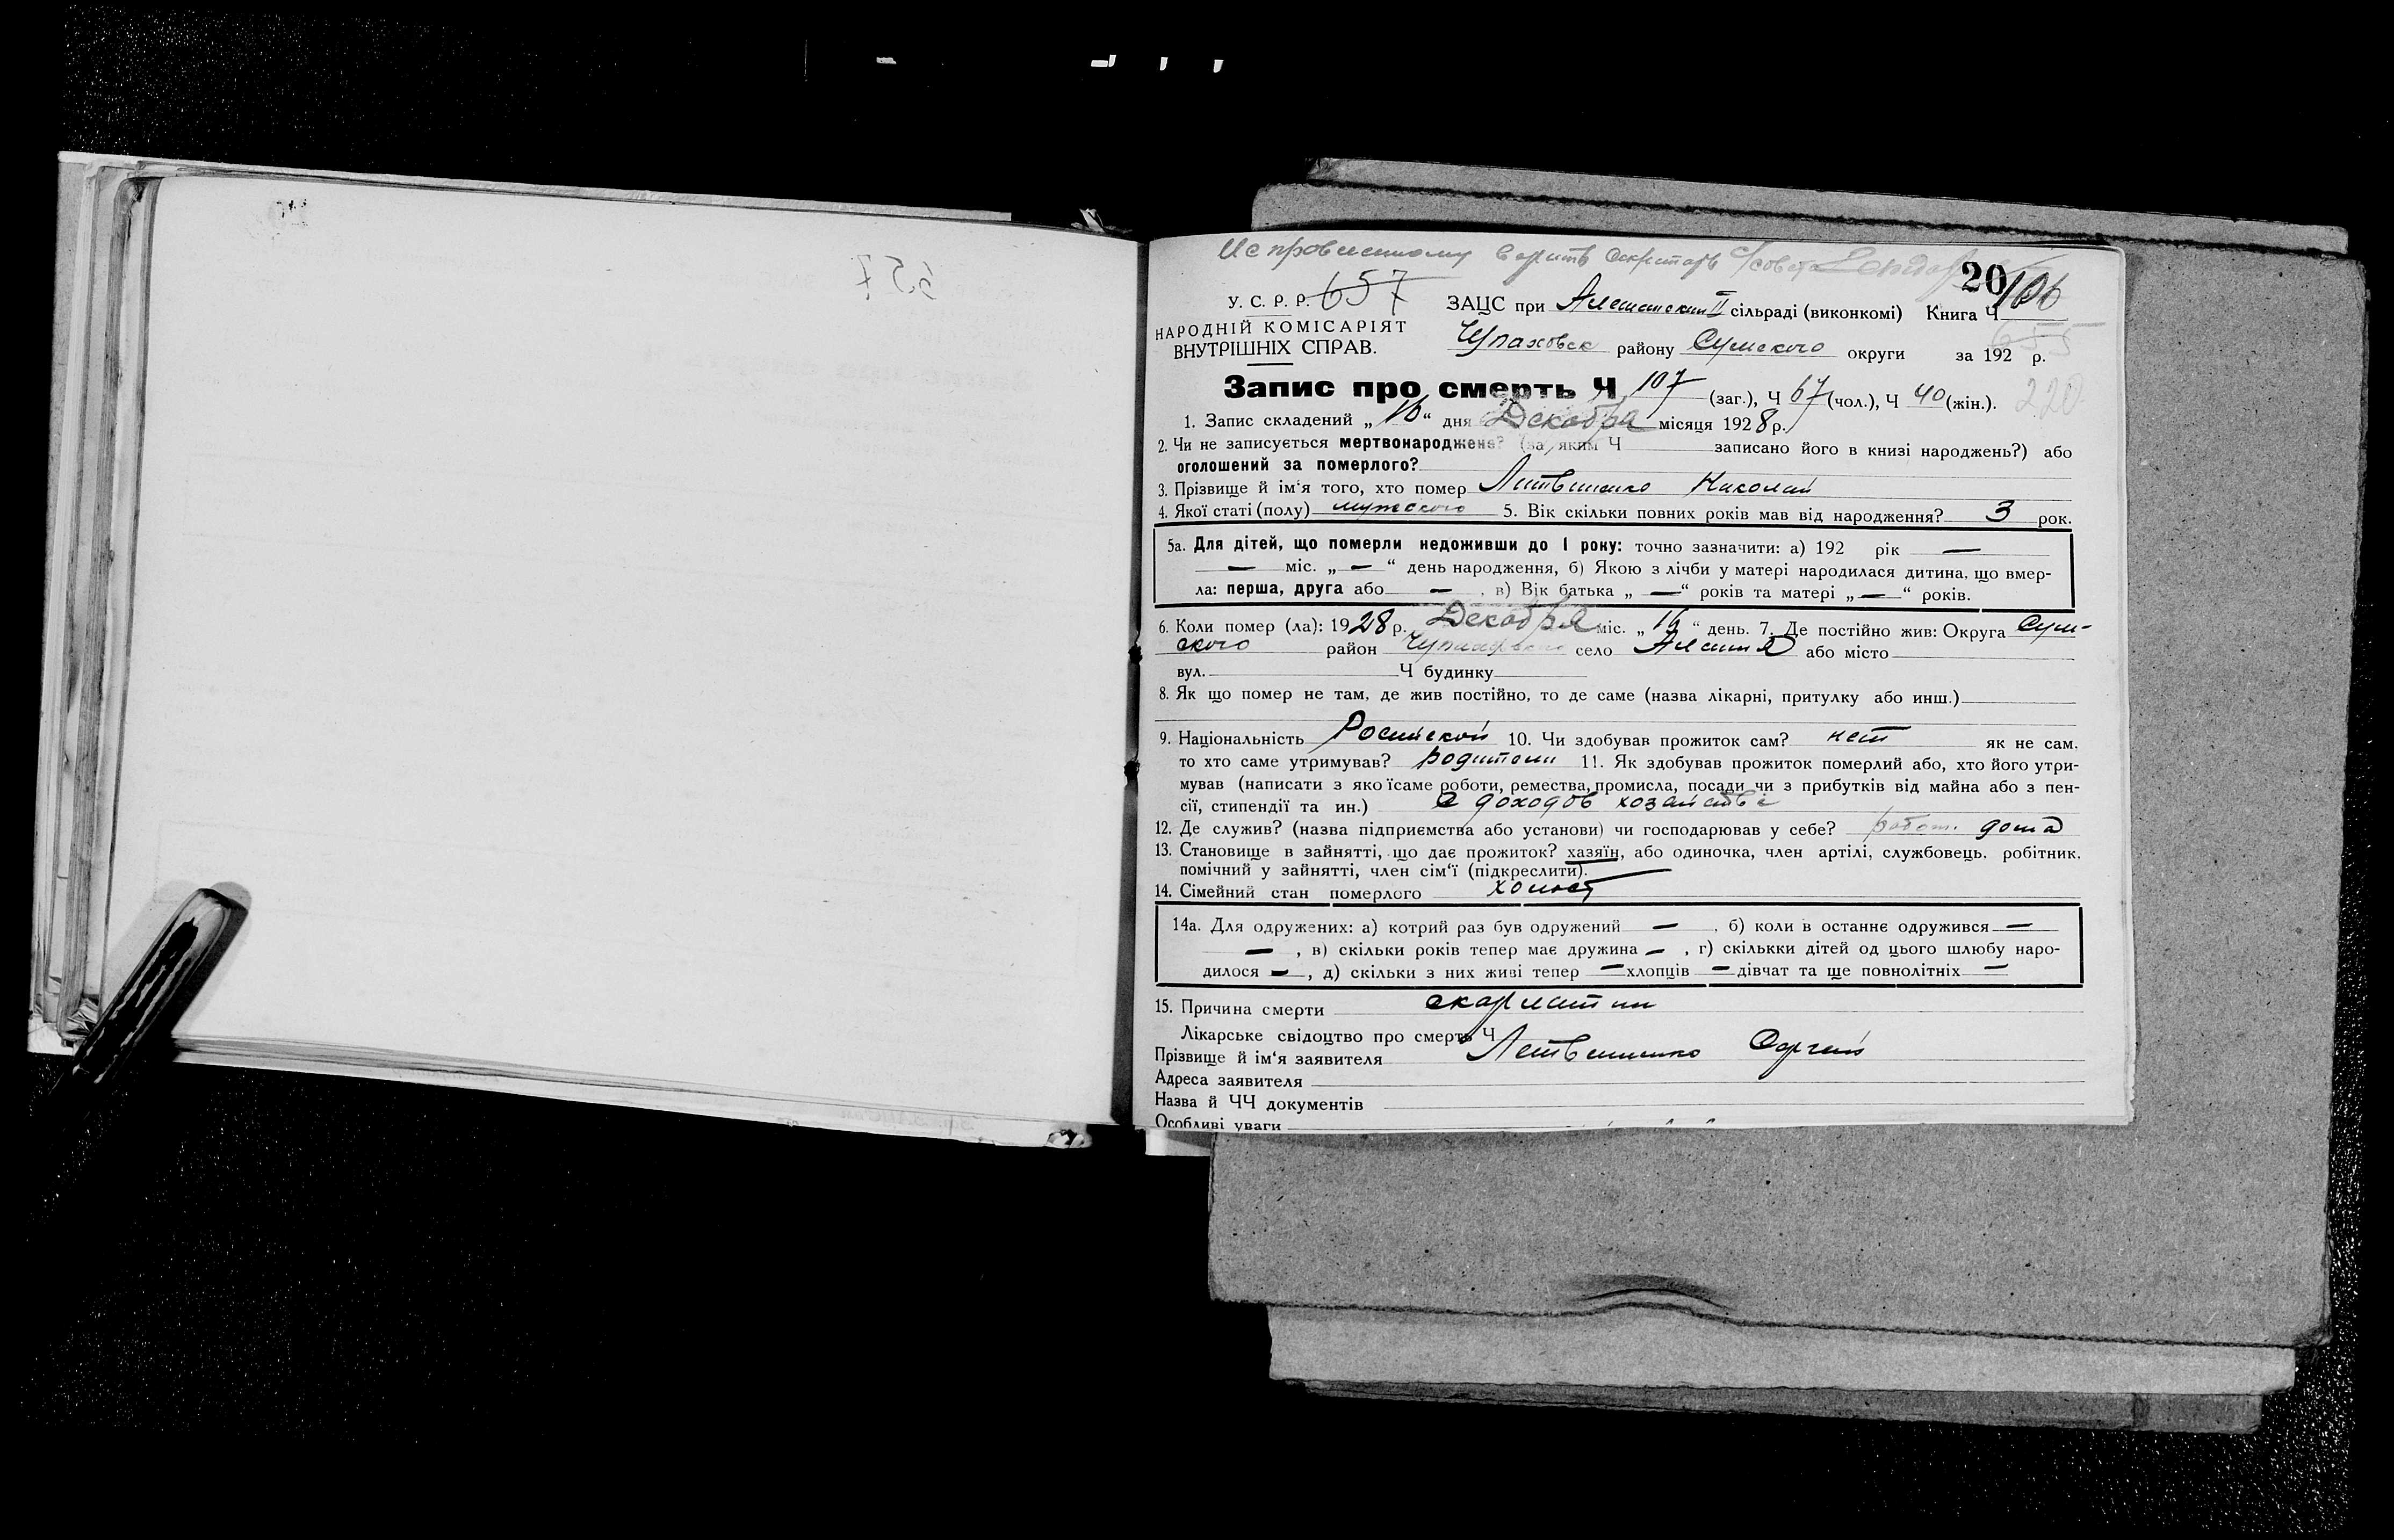 Исправленному верить Секретарь с/совета
20
У. С. Р. Р. 657
ЗАЦС при Алешинском II сільраді (виконкомі) Книга Ч 106
НАРОДНІЙ КОМІСАРІЯТ
ВНУТРІШНІХ СПРАВ.
Чупаховск району Сумского округи за 192 р.
655
Запис про смерть Ч 107 (заг.), Ч 67 (чол.), Ч 40 (жін.).
220
1. Запис складений „16“ дня Декабра місяця 1928 р.
2. Чи не записується мертвонароджене? (за яким Ч записано його в книзі народжень?) або
оголошений за померлого?
3. Прізвище й ім‘я того, хто помер Литвиненко Николай
4. Якої статі (полу) мужского 5. Вік скільки повних років мав від народження? 3 рок.
5а. Для дітей, що померли недоживши до 1 року: точно зазначити: а) 192 рік —
— міс. „ — “ день народження, б) Якою з лічби у матері народилася дитина, що вмер-
ла: перша, друга або — , в) Вік батька „ — “ років та матері „ — “ років.
6. Коли помер (ла): 1928 р. Декабря міс. „ 16 “ день. 7. Де постійно жив: Округа Сум-
ского район Чупаховск село Алешня або місто
вул. Ч будинку
8. Як що помер не там, де жив постійно, то де саме (назва лікарні, притулку або инш.)
9. Національність Российской 10. Чи здобував прожиток сам? нет як не сам.
то хто саме утримував? родители 11. Як здобував прожиток померлий або, хто його утри-
мував (написати з якоїсаме роботи, ремества, промисла, посади чи з прибутків від майна або з пен-
сії, стипендії та ин.) с доходов хозайства
12. Де служив? (назва підприємства або установи) чи господарював у себе? работ. дома
13. Становище в зайнятті, що дає прожиток? хазяїн, або одиночка, член артілі, службовець. робітник.
помічний у зайнятті, член сім‘ї (підкреслити).
14. Сімейний стан померлого холост
14а. Для одружених: а) котрий раз був одружений — , б) коли в останнє одружився —
— , в) скільки років тепер має дружина — , г) скількки дітей од цього шлюбу наро-
дилося — , д) скільки з них живі тепер — хлопців — дівчат та ще повнолітніх —
15. Причина смерти скарлатин
Лікарське свідоцтво про смерть Ч
Прізвище й ім‘я заявителя Литвиненко Сергей
Адреса заявителя
Назва й ЧЧ документів
Особливі уваги